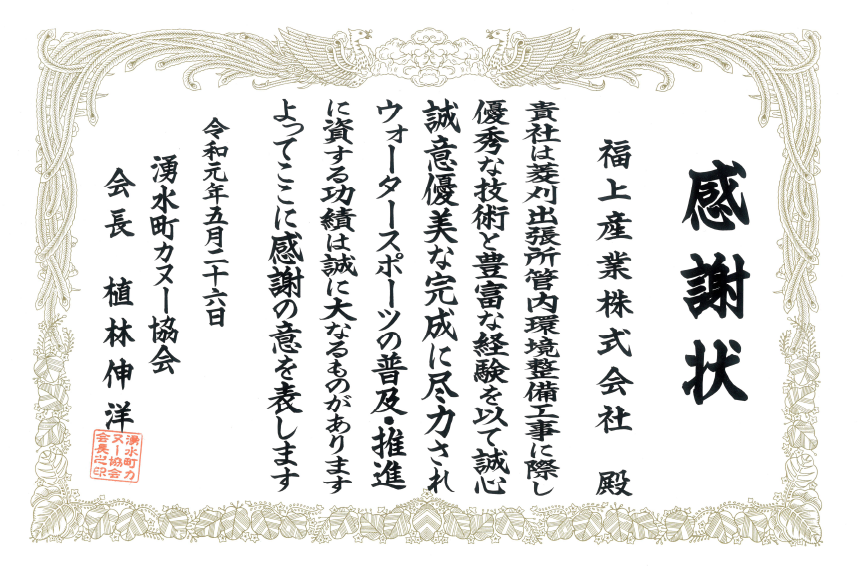 感謝状
福上産業株式会社 殿
貴社は菱刈出張所管内環境整備工事に際し
優秀な技術と豊富な経験を以て誠心
誠意優美な完成に尽力され
ウォータースポーツの普及・推進
に資する功績は誠に大なるものがあります
よってここに感謝の意を表します
令和元年五月二十六日
湧水町カヌー協会
会長 植林伸洋
湧水町カ
ヌー協会
会長之印